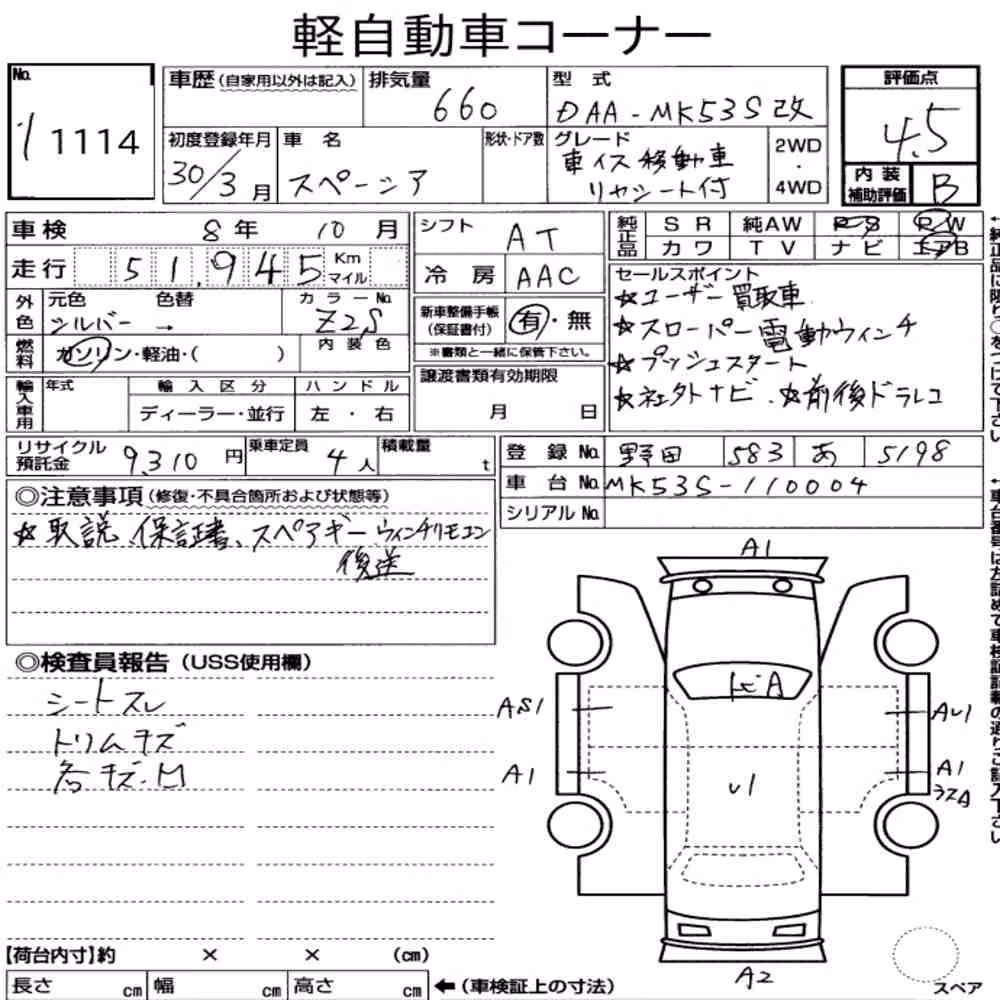 軽自動車コーナー
No. 1 1114
車歴 (自家用以外は記入)
排気量 660
型式 DAA-MK53S改
評価点 4.5
内装補助評価 B
初度登録年月 30/3月
車名 スペーシア
形状・ドア数
グレード 車イス移動車
リヤシート付
2WD・4WD
車検 8年 10月
走行 51,945 Km マイル
外色 元色 シルバー 色替 → カラーNo. Z2S
燃料 ガソリン・軽油・( ) 内装色
輸入車用 年式 輸入区分 ハンドル
ディーラー・並行 左・右
シフト AT
冷房 AAC
新車整備手帳(保証書付) 有・無
※書類と一緒に保管下さい。
譲渡書類有効期限
月 日
純正品 SR 純AW PS PW
カワ TV ナビ エアB
セールスポイント
☆ユーザー買取車
☆スローパー電動ウィンチ
☆プッシュスタート
☆社外ナビ、☆前後ドラレコ
リサイクル預託金 9,310円
乗車定員 4人
積載量 t
登録No. 野田 583 あ 5198
車台No. MK53S-110004
シリアルNo.
◎注意事項(修復・不具合箇所および状態等)
☆取説、保証書、スペアキー、ウィンチリモコン
後送
◎検査員報告(USS使用欄)
シートスレ
トリムキズ
各キズ・凹
A1
トビA
AS1
AU1
A1
A1
U1
A2
スペア
【荷台内寸】約 × × (cm)
長さ cm 幅 cm 高さ cm ←(車検証上の寸法)